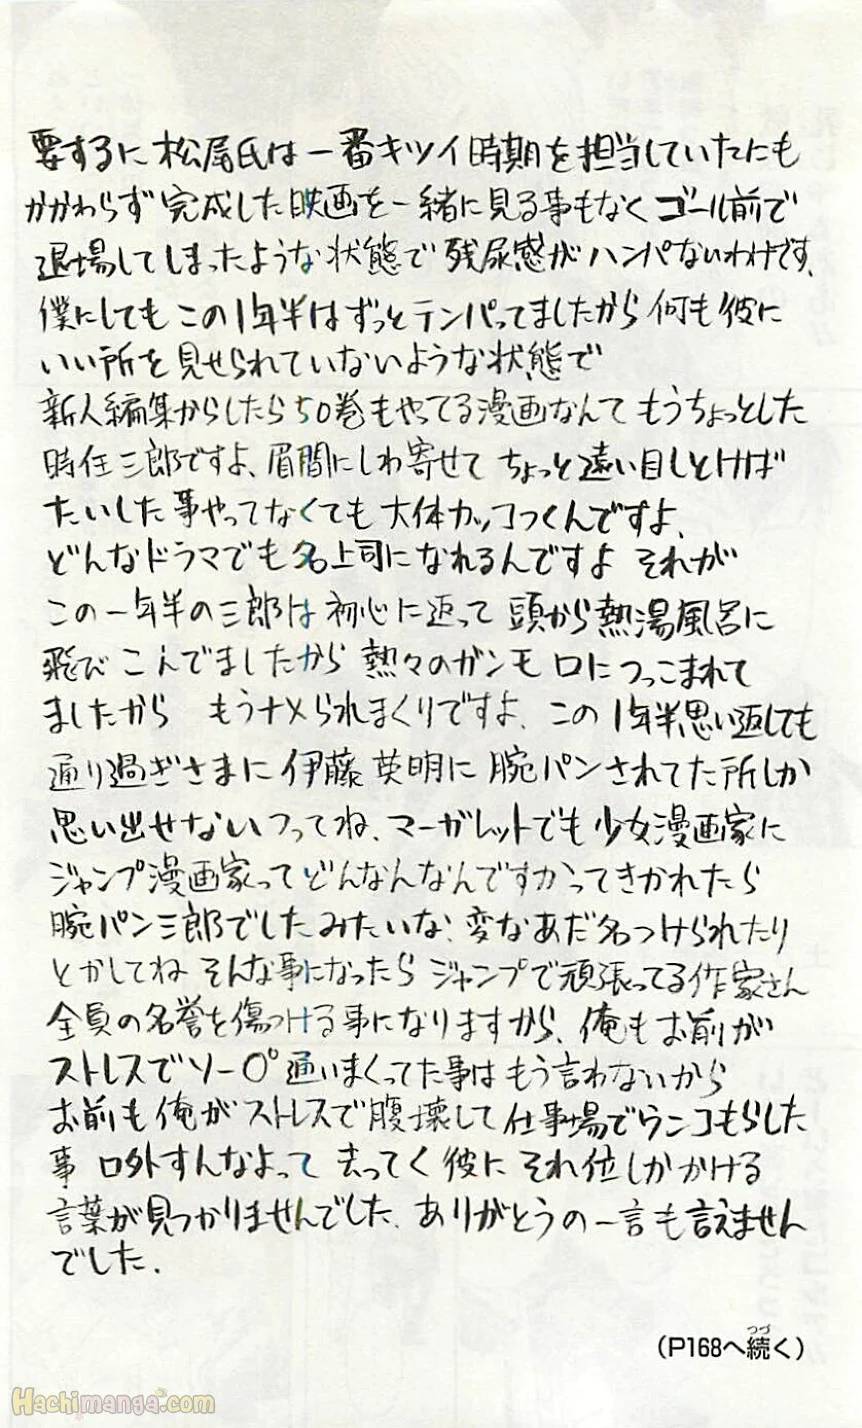 要するに松尾氏は一番キツイ時期を担当していたにも
かかわらず完成した映画を一緒に見る事もなくゴール前で
退場してしまったような状態で残尿感がハンパないわけです、
僕にしてもこの1年半はずっとテンパってましたから何も彼に
いい所を見せられていないような状態で
新人編集からしたら50巻もやってる漫画なんてもうちょっとした
時任三郎ですよ、眉間にしわ寄せてちょっと遠い目しとけば
たいした事やってなくても大体カッコつくんですよ、
どんなドラマでも名上司になれるんですよ それが
この一年半の三郎は初心に返って頭から熱湯風呂に
飛びこんでましたから 熱々のガンモ口につっこまれて
ましたから もうナメられまくりですよ、この1年半思い返しても
通り過ぎさまに伊藤英明に腕パンされてた所しか
思い出せないっつってね、マーガレットでも少女漫画家に
ジャンプ漫画家ってどんなんなんですかってきかれたら
腕パン三郎でしたみたいな、変なあだ名つけられたり
とかしてね そんな事になったらジャンプで頑張ってる作家さん
全員の名誉を傷つける事になりますから、俺もお前が
ストレスでソー○゜通いまくってた事はもう言わないから
お前も俺がストレスで腹壊して仕事場でウンコもらした
事 口外すんなよって 去ってく彼にそれ位しかかける
言葉が見つかりませんでした、ありがとうの一言も言えません
でした.
(P168へ続く)
つづ
Hachimanga.com